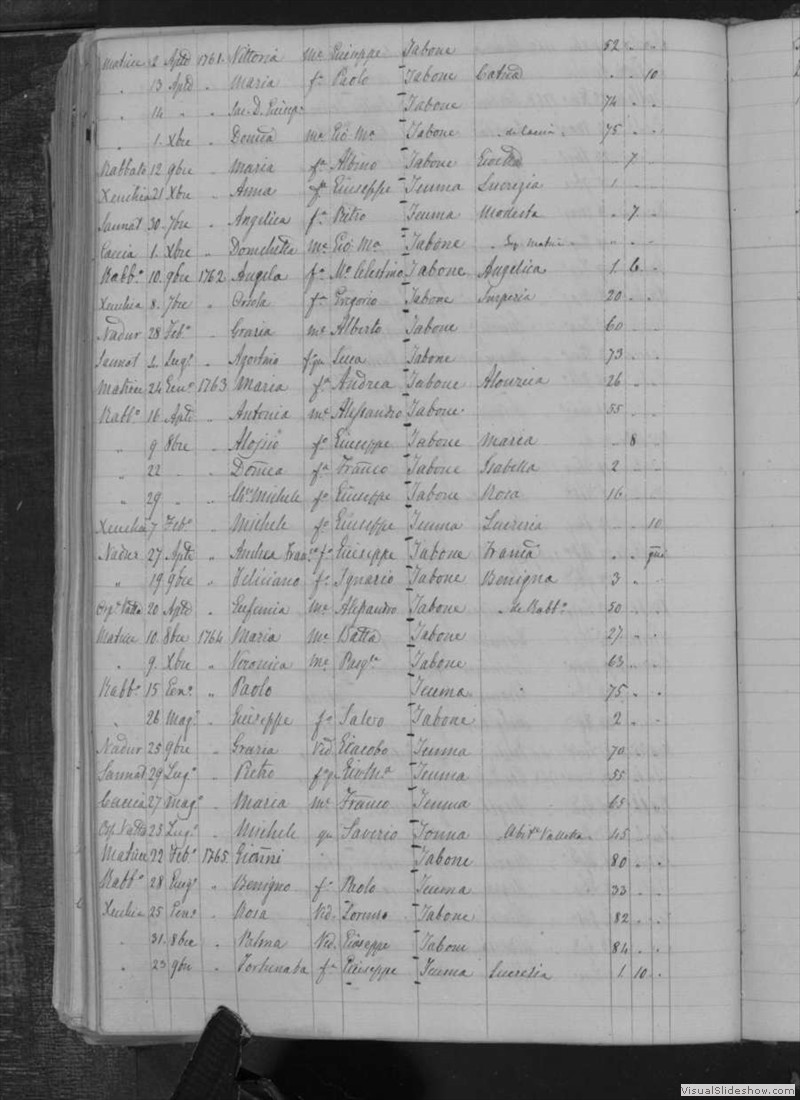 Matrice 2 Aple 1761 Vittoria m.e Giuseppe Tabone 52 " "
" 13 Aple " Maria f.a Paolo Tabone " " 10
" 14 " " Sac. D. Giusep.e Tabone 74 " "
" 1. Xbre " Domca m.e Gio Ma Tabone 75 " "
Rabbato 12 9bre " Maria f.a Albino Tabone " 7
Xeuchia 21 Xbre " Anna f.a Giuseppe Teuma Lucrezia 1 "
Sannat 30. 7bre " Angelica f.a Pietro Teuma Modesta " 7 "
Caccia 1. Xbre " m.e Gio Ma Tabone " " "
Rabb.o 10. 9bre 1762 Angela f.a M.o Celestino Tabone Angelica 1. 6 "
Xeuchia 8. 7bre " f.a Gregorio Tabone Imperia 20 " "
Nadur 28 Feb.o " Grazia m.e Alberto Tabone 60 " "
Sannat Lug.o " Agostino f. qu Luca Tabone 73 " "
Matrice 24 Gen.o 1763 Maria f.a Andrea Tabone 26 " "
Rabb.o 16 Aple " Antonia m.e Alessandro Tabone 55 " "
" 9 8bre " Aloisio f.o Giuseppe Tabone Maria " 8 "
" 22 " " Domca f.a Franco Tabone Isabella 2 " "
" 29 " " Michele f.o Giuseppe Tabone Rosa 16 " "
Xeuchia 7 Feb.o " Michele f.o Giuseppe Teuma Lucrezia " " 10
Nadur 27 Aple " Andrea Fran.co f.o Giuseppe Tabone " "
" 19 9bre " Feliciano f.o Ignazio Tabone Benigna 3 " "
20 Aple " Eufemia m.e Alessandro Tabone de Rabb.o 50 " "
Matrice 10. 8bre 1764 Maria m.e Batta Tabone 27 " "
" 9. Xbre " Veronica m.e Tabone 63 " "
Rabb.o 15 Gen.o " Paolo Teuma 75 " "
" 26 Mag.o " Giuseppe f.o Salvo Tabone 2 " "
Nadur 25 9bre " Grazia Vid. Giacobo Teuma 70 " "
Sannat 29 Lug.o " Pietro f. q Gio Ma Teuma 55 " "
Caccia 27 Mag.o " Maria m.e Franco Teuma 65 " "
25 Lug.o " Michele qu Saverio Tonna Valletta 45 " "
Matrice 22 Feb.o 1765 Gioanni Tabone 80 " "
Rabb.o 28 " Benigno f.o Paolo Teuma 33 " "
Xeuchia 25 Gen.o " Rosa Vid. Lorenzo Tabone 82 " "
" 31. 8bre " Vid. Giuseppe Tabone 84 " "
" 23 9bre " Fortunata f.a Giuseppe Teuma Lucrezia 1 10 "
VisualSlideshow.com